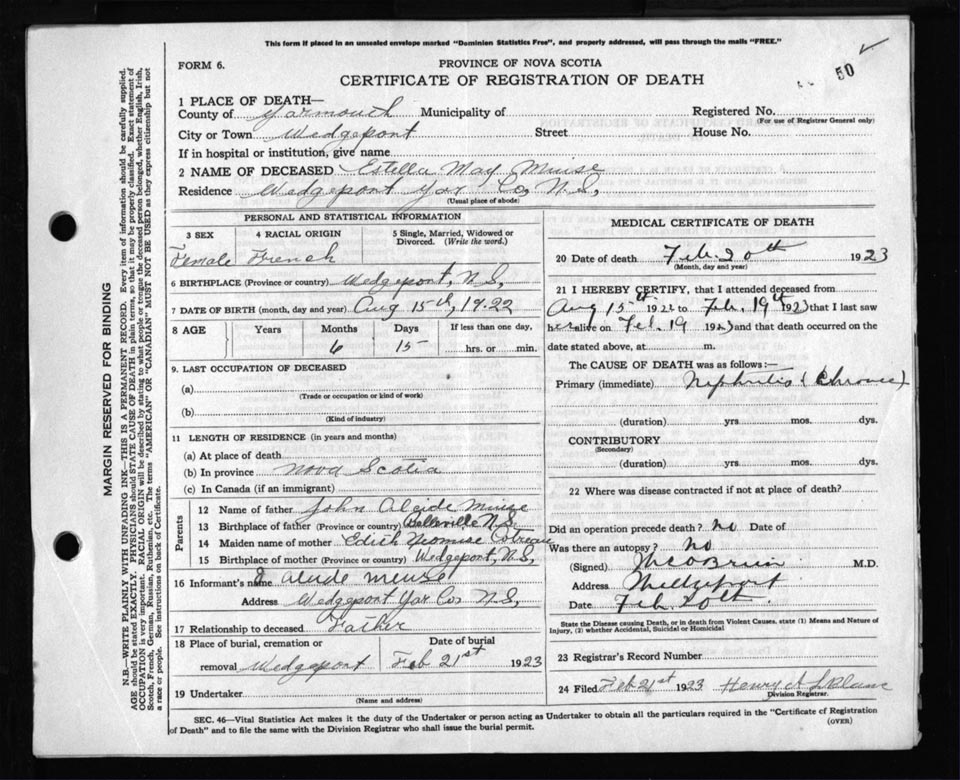 This form if placed in an unsealed envelope marked "Dominion Statistics Free", and properly addressed, will pass through the mails "FREE."
FORM 6.
PROVINCE OF NOVA SCOTIA
50
CERTIFICATE OF REGISTRATION OF DEATH
1 PLACE OF DEATH—
County of Yarmouth Municipality of Registered No.
(For use of Registrar General only)
City or Town Wedgeport Street House No.
If in hospital or institution, give name
2 NAME OF DECEASED Estella May Muise
Residence Wedgeport Yar Co, N.S,
(Usual place of abode)
PERSONAL AND STATISTICAL INFORMATION
3 SEX 4 RACIAL ORIGIN 5 Single, Married, Widowed or Divorced. (Write the word.)
Female French
6 BIRTHPLACE (Province or country) Wedgeport, N.S,
7 DATE OF BIRTH (month, day and year) Aug 15th, 1922
8 AGE Years Months Days If less than one day,
6 15 hrs. or min.
9. LAST OCCUPATION OF DECEASED
(a)
(Trade or occupation or kind of work)
(b)
(Kind of industry)
11 LENGTH OF RESIDENCE (in years and months)
(a) At place of death
(b) In province Nova Scotia
(c) In Canada (if an immigrant)
Parents
12 Name of father John Alcide Muise
13 Birthplace of father (Province or country) Belleville N.S.
14 Maiden name of mother Edith
15 Birthplace of mother (Province or country) Wedgeport, N.S,
16 Informant's name Alcide Meuse
Address Wedgeport Yar Co. N.S,
17 Relationship to deceased Father
18 Place of burial, cremation or Date of burial
removal Wedgeport Feb 21st 1923
19 Undertaker
(Name and address)
MEDICAL CERTIFICATE OF DEATH
20 Date of death Feb. 20th 1923
(Month, day and year)
21 I HEREBY CERTIFY, that I attended deceased from
Aug 15th 1922 to Feb. 19th 1923 that I last saw
her alive on Feb. 19 1923 and that death occurred on the
date stated above, at m.
The CAUSE OF DEATH was as follows:—
Primary (immediate) Nephritis (Chronic)
(duration) yrs mos. dys.
CONTRIBUTORY
(Secondary)
(duration) yrs. mos. dys.
22 Where was disease contracted if not at place of death?
Did an operation precede death? no Date of
Was there an autopsy? no
(Signed) M.D.
Address
Date Feb. 20th.
State the Disease causing Death, or in death from Violent Causes, state (1) Means and Nature of Injury, (2) whether Accidental, Suicidal or Homicidal
23 Registrar's Record Number
24 Filed Feb 21st 1923 Henry A LeBlanc
Division Registrar.
SEC. 46—Vital Statistics Act makes it the duty of the Undertaker or person acting as Undertaker to obtain all the particulars required in the "Certificate of Registration
of Death" and to file the same with the Division Registrar who shall issue the burial permit. (OVER)
MARGIN RESERVED FOR BINDING
N.B.—WRITE PLAINLY WITH UNFADING INK—THIS IS A PERMANENT RECORD. Every item of information should be carefully supplied.
AGE should be stated EXACTLY. PHYSICIANS should STATE CAUSE OF DEATH in plain terms, so that it may be properly classified. Exact statement of
OCCUPATION is very important. RACIAL ORIGIN will be described by stating to what people or tongue the deceased person belonged, whether English, Irish,
Scotch, French, German, Russian, Ruthenian, etc. The terms "AMERICAN" OR "CANADIAN" MUST NOT BE USED as they express citizenship but not
a race or people. See instructions on back of Certificate.